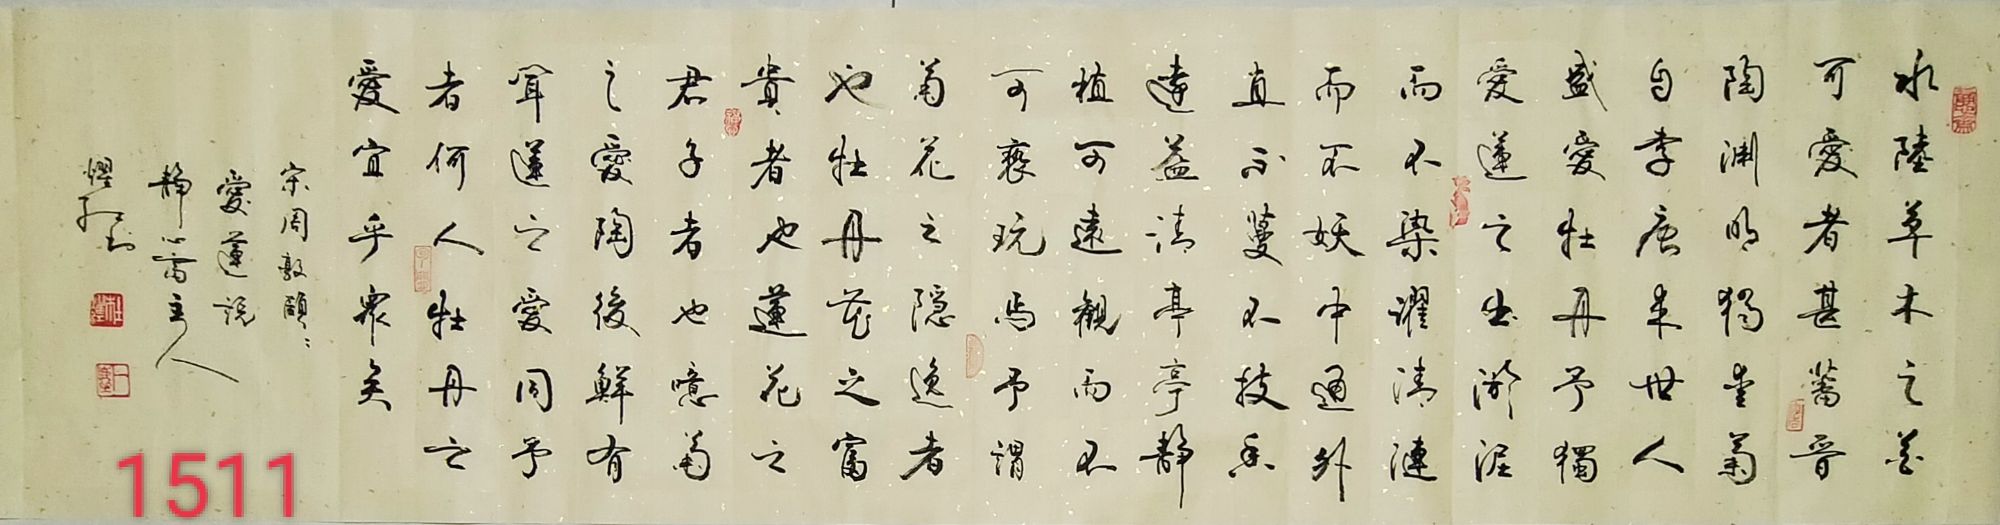 水陸草木之花
可愛者甚蕃晉
陶渊明獨愛菊
自李唐来世人
盛愛牡丹予獨
愛蓮之出淤泥
而不染濯清漣
而不妖中通外
直不蔓不枝香
遠益清亭亭静
植可遠觀而不
可褻玩焉予謂
菊花之隱逸者
也牡丹花之富
貴者也蓮花之
君子者也噫菊
之愛陶後鮮有
聞蓮之愛同予
者何人牡丹之
愛宜乎衆矣
宋周敦頤
愛蓮説
静 齋主人
1511